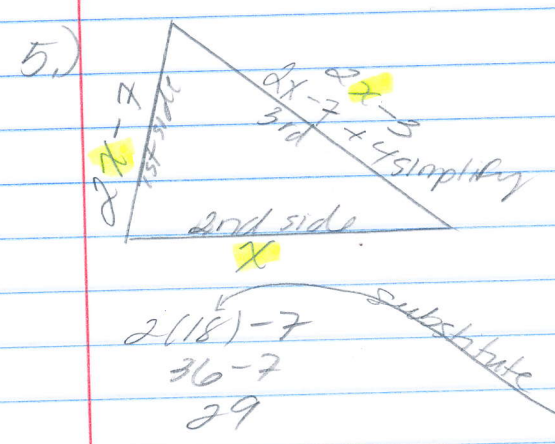 5.)
2x-7
1st side
2x-3
2x-7+4 simplify
3rd
2nd side
x
substitute
2(18)-7
36-7
29